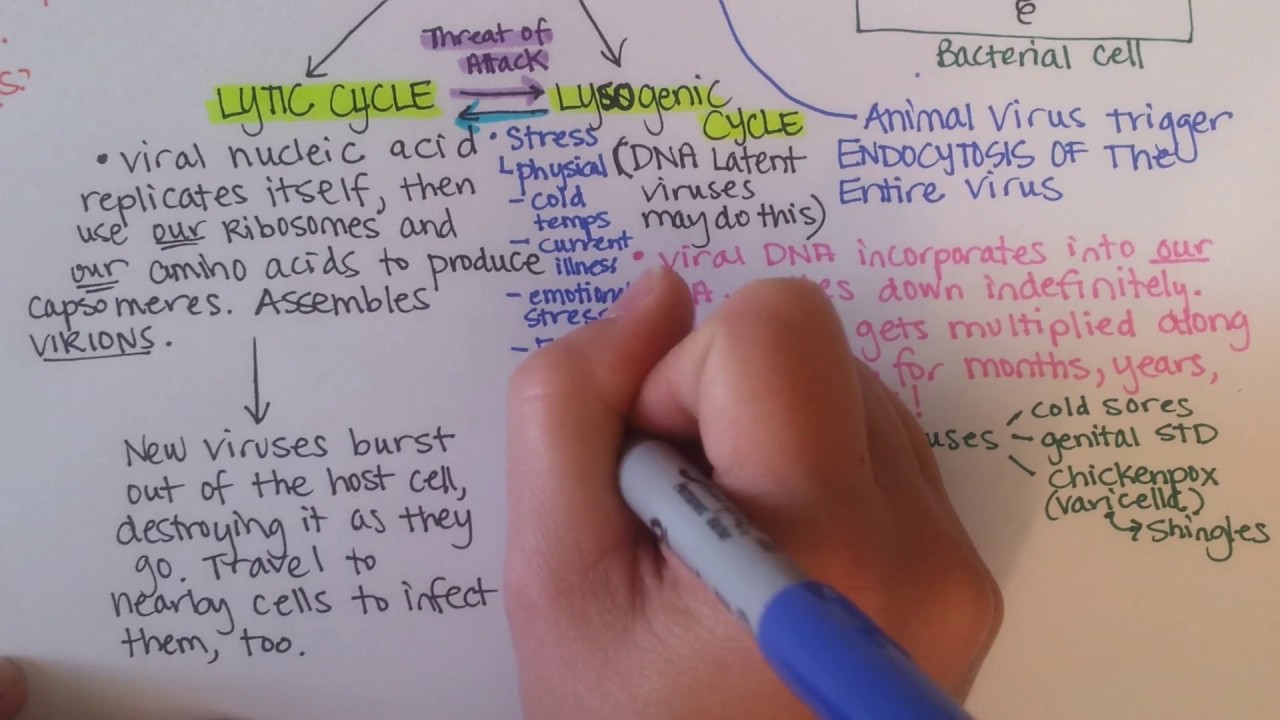 s?
Threat of
Attack
LYTIC CYCLE
Lysogenic
CYCLE
• viral nucleic acid
replicates itself, then
use our Ribosomes and
our amino acids to produce
capsomeres. Assembles
VIRIONS.
New viruses burst
out of the host cell,
destroying it as they
go. Travel to
nearby cells to infect
them, too.
• Stress
physical
- cold
temps
- current
illness
- emotional
stress
-
(DNA Latent
viruses
may do this)
• viral DNA incorporates into our
down indefinitely.
gets multiplied along
for months, years,
!
cold sores
genital STD
Chickenpox
(varicella)
Shingles
e
Bacterial cell
Animal Virus trigger
ENDOCYTOSIS OF The
Entire Virus